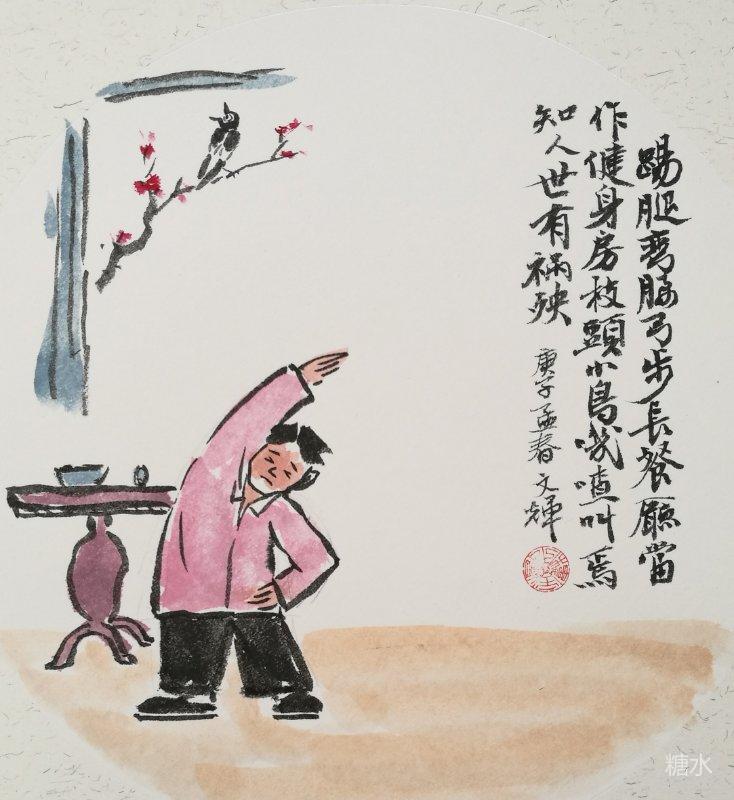 踢腿弯腰弓步長餐廳當
作健身房枝頭小鳥喳叫焉
知人世有祸殃
庚子孟春文輝
糖水